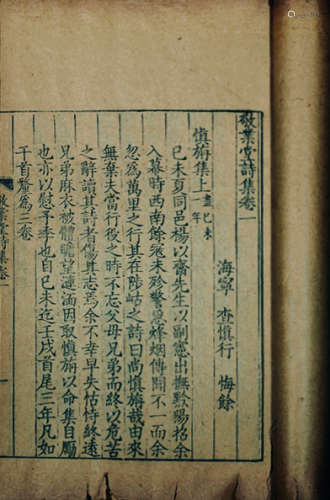 敬業堂詩集卷一
海寧 查慎行 悔餘
慎旃集上 盡己未年
己未夏同邑楊以齋先生以副憲出撫黔陽招余
入幕時西南餘冦未殄警急烽烟傳聞不一而余
忽為萬里之行其在陟岵之詩曰尚慎旃哉由來
無棄夫當行役之時不忘父母兄弟而終以危苦
之辭讀其詩者傷其志焉余不幸早失怙恃終遠
兄弟麻衣被體瞻望漣洏因取慎旃以命集自勵
也亦以慰予季也自己未迄壬戌首尾三年凡如
干首釐為三卷
敬業堂詩集卷一